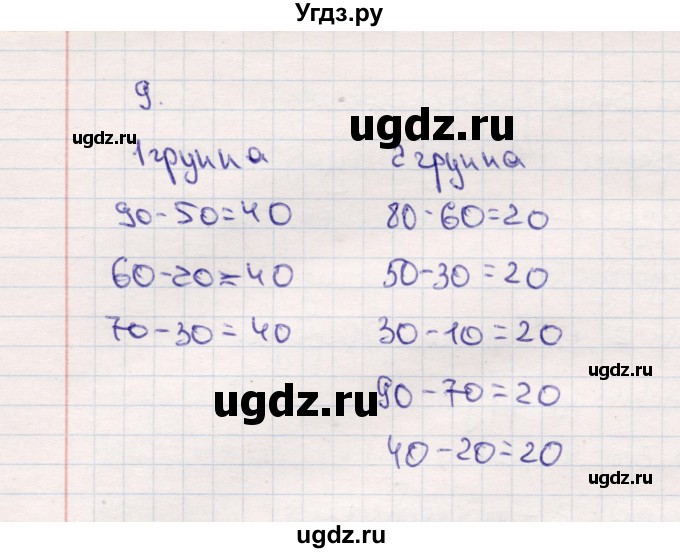 Угдз.ру
9.
ugdz.ru
ugdz.ru
1 группа
2 группа
90-50=40
80-60=20
60-20=40
50-30=20
70-30=40
30-10=20
ugdz.ru
ugdz.ru
90-70=20
40-20=20
ugdz.ru
ugdz.ru